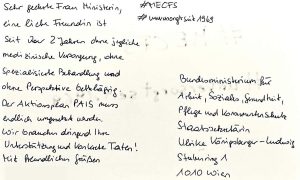 Sehr geehrte Frau Ministerin,
eine liebe Freundin ist
seit über 2 Jahren ohne jegliche
medizinische Versorgung, ohne
spezialisierte Behandlung und
ohne Perspektive bettlägrig.
Der Aktionsplan PAIS muss
endlich umgesetzt werden
Wir brauchen dringend Ihre
Unterstützung und konkrete Taten!
Mit freundlichen Grüßen
#MECFS
#unversorgtseit1969
Bundesministerium für
Arbeit, Soziales, Gesundheit,
Pflege und Konsumentenschutz
Staatssekretärin
Ulrike Königsberger-Ludwig
Stubenring 1
1010 Wien